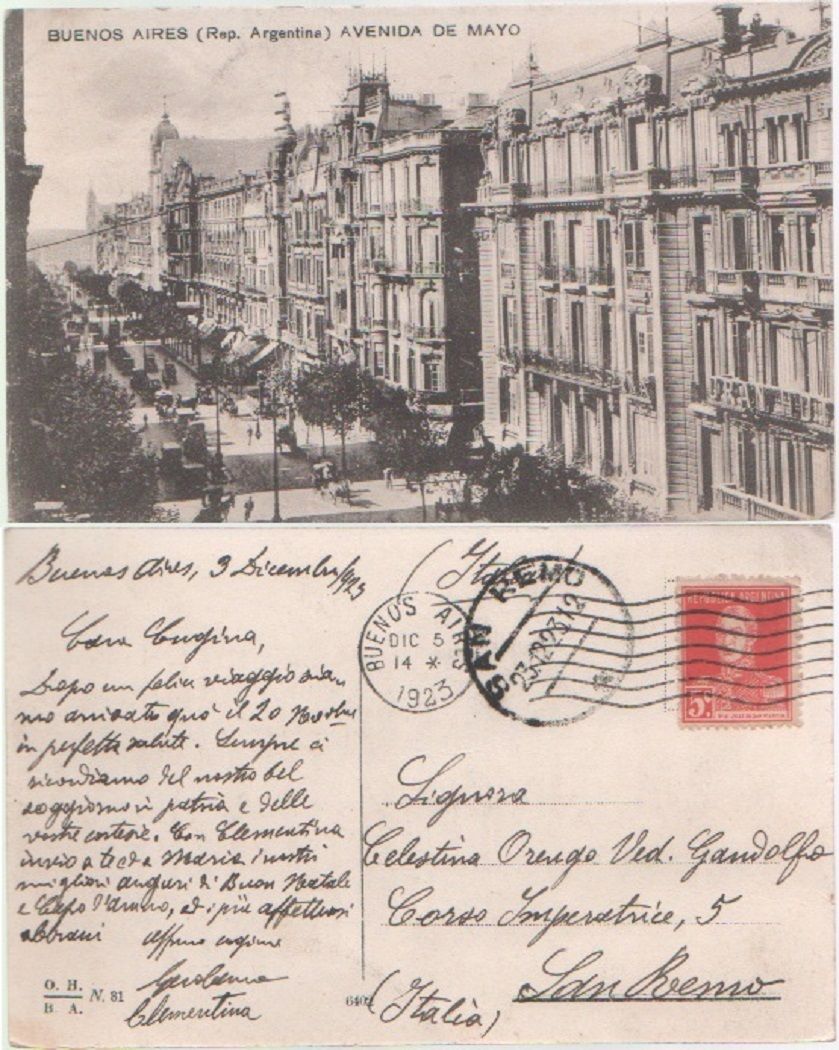 BUENOS AIRES (Rep. Argentina) AVENIDA DE MAYO
Buenos Aires, 3 Dicembre/923
Cara Cugina,
Dopo un felice viaggio sia-
mo arrivati quà il 20 Novbre
in perfetta salute. Sempre ci
ricordiamo del nostro bel
soggiorno in patria e delle
vostre cortesie. Con Clementina
invio a te ed a Maria i nostri
migliori auguri di Buon Natale
e Capo d'anno, ed i più affettuosi
abbracci
cugino
Clementina
O. H.
B. A.
N. 81
(Italia)
BUENOS AIRES
DIC 5
14 *
1923
SAN REMO
REPUBLICA ARGENTINA
5c
Signora
Celestina Orengo Ved. Gandolfo
Corso Imperatrice, 5
San Remo
(Italia)